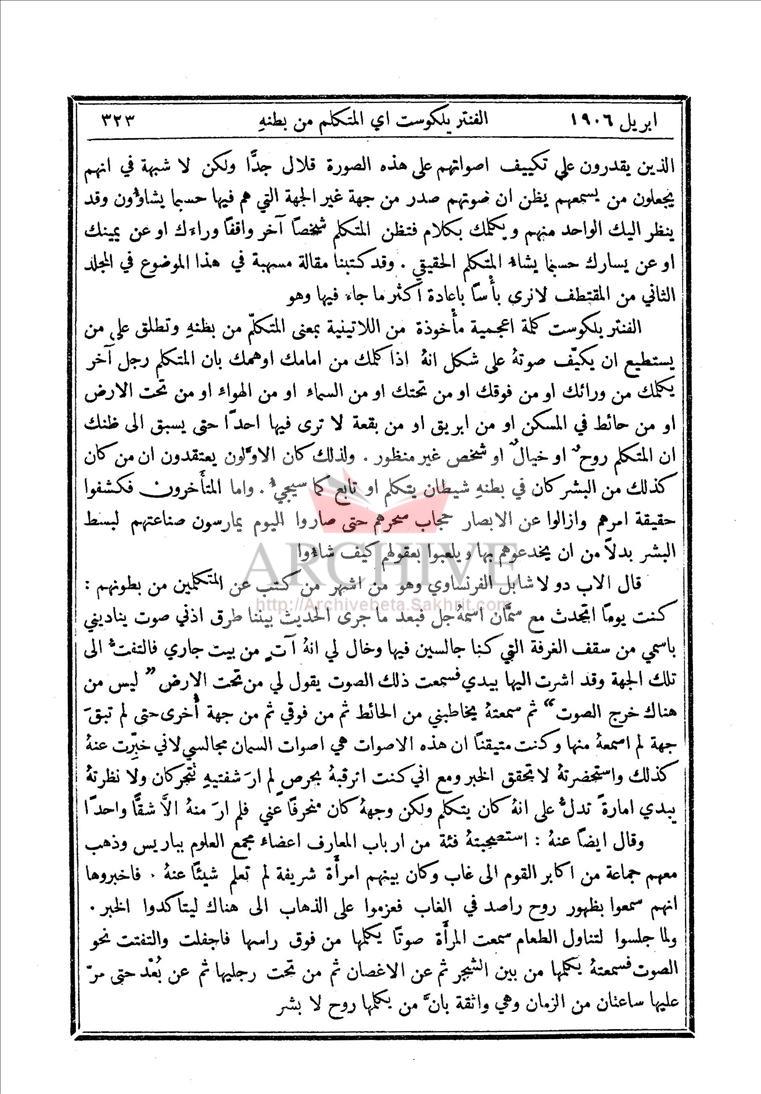 ابريل ١٩٠٦ الفنتر يلكوست اي المتكلم من بطنهِ ٣٢٣
الذين يقدرون على تكييف اصواتهم على هذه الصورة قلال جدًّا ولكن لا شبهة في انهم
يجعلون من يسمعهم يظن ان صوتهم صدر من جهة غير الجهة التي هم فيها حسبما يشاؤُون وقد
ينظر اليك الواحد منهم ويكلمك بكلام فتظن المتكلم شخصًا آخر واقفًا وراءَك او عن يمينك
او عن يسارك حسبما يشاءُ المتكلم الحقيقي . وقد كتبنا مقالة مسهبة في هذا الموضوع في المجلد
الثاني من المقتطف لا نرى بأسًا باعادة اكثر ما جاء فيها وهو
الفنتر يلكوست كلمة اعجمية مأْخوذة من اللاتينية بمعنى المتكلّم من بطنهِ وتطلق على من
يستطيع ان يكيّف صوتهُ على شكل انهُ اذا كلمك من امامك اوهمك بان المتكلم رجل آخر
يكلمك من ورائك او من فوقك او من تحتك او من السماء او من الهواء او من تحت الارض
او من حائط في المسكن او من ابريق او من بقعة لا ترى فيها احدًا حتى يسبق الى ظنك
ان المتكلم روحٌ او خيالٌ او شخص غير منظور . ولذلك كان الاوَّلون يعتقدون ان من كان
كذلك من البشر كان في بطنهِ شيطان يتكلم او تابع كما سيجيءُ . واما المتأَخرون فكشفوا
حقيقة امرهم وازالوا عن الابصار حجاب سحرهم حتى صاروا اليوم يمارسون صناعتهم لبسط
البشر بدلاً من ان يخدعوهم بها ويلعبوا بعقولهم كيف شاءُوا
ARCHIVE
قال الاب دو لا شابل الفرنساوي وهو من اشهر من كتب عن المتكلمين من بطونهم :
http://Archivebeta.Sakhrit.com
كنت يومًا اتحدث مع سمَّان اسمهُ جل فبعد ما جرى الحديث بيننا طرق اذني صوت يناديني
باسمي من سقف الغرفة التي كنا جالسين فيها وخال لي انهُ آتٍ من بيت جاري فالتفتُّ الى
تلك الجهة وقد اشرت اليها بيدي فسمعت ذلك الصوت يقول لي من تحت الارض " ليس من
هناك خرج الصوت " ثم سمعتهُ يخاطبني من الحائط ثم من فوقي ثم من جهة أُخرى حتى لم تبقَ
جهة لم اسمعهُ منها وكنت متيقنًا ان هذه الاصوات هي اصوات السمان مجالسي لاني خبِّرت عنهُ
كذلك واستحضرتهُ لاتحقق الخبر ومع اني كنت ارقبهُ بحرص لم ارَ شفتيهِ تتحركان ولا نظرتهُ
يبدي امارة تدلُّ على انهُ كان يتكلم ولكن وجههُ كان منحرفًا عني فلم ارَ منهُ الَّا شقًّا واحدًا
وقال ايضًا عنهُ : استصحبتهُ فئة من ارباب المعارف اعضاء مجمع العلوم بباريس وذهب
معهم جماعة من اكابر القوم الى غاب وكان بينهم امرأَة شريفة لم تعلم شيئًا عنهُ . فاخبروها
انهم سمعوا بظهور روح راصد في الغاب فعزموا على الذهاب الى هناك ليتأكدوا الخبر .
ولما جلسوا لتناول الطعام سمعت المرأَة صوتًا يكلمها من فوق راسها فاجفلت والتفتت نحو
الصوت فسمعتهُ يكلمها من بين الشجر ثم عن الاغصان ثم من تحت رجليها ثم عن بُعْد حتى مرّ
عليها ساعتان من الزمان وهي واثقة بانَّ من يكلمها روح لا بشر